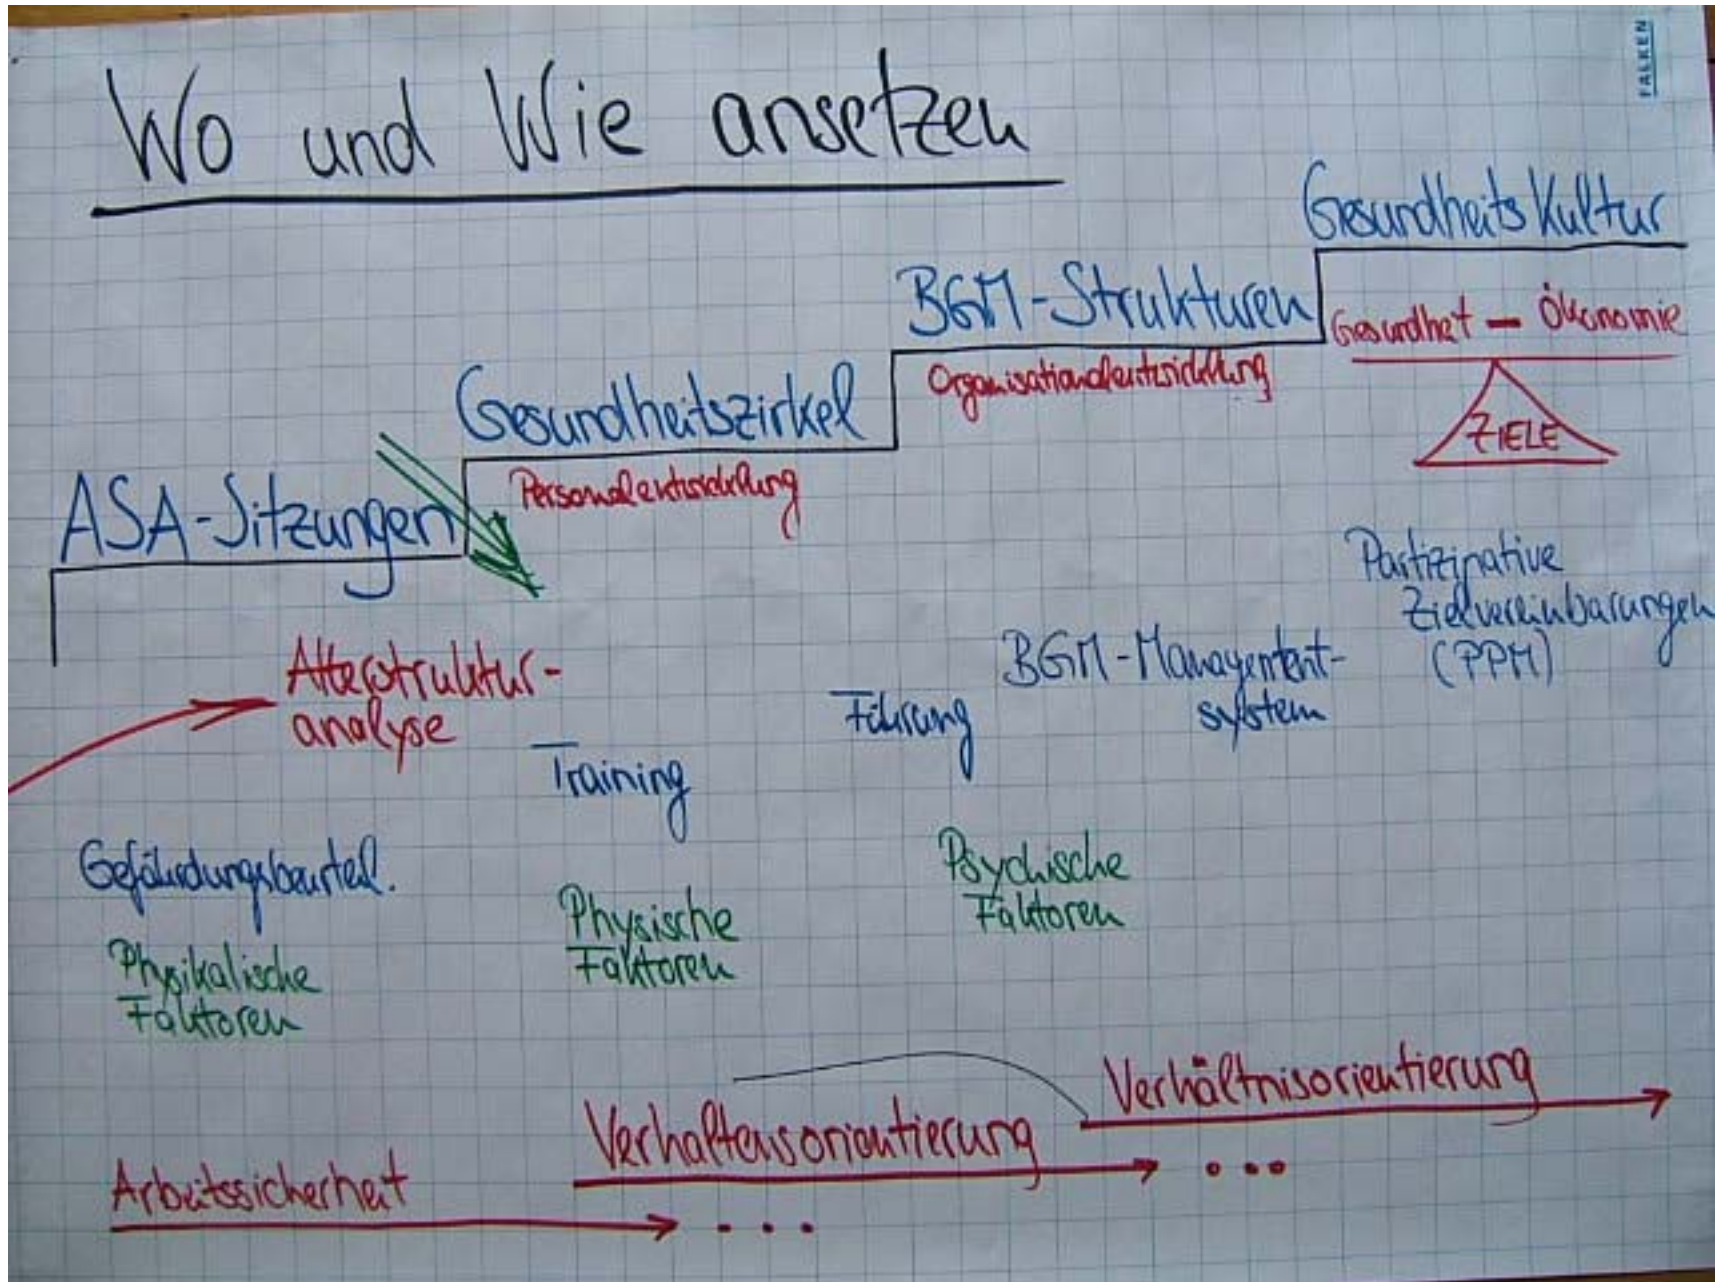 FALKEN
Wo und Wie ansetzen
Gesundheitskultur
BGM-Strukturen
Gesundheit - Ökonomie
Organisationalentwicklung
ZIELE
Gesundheitszirkel
Personalentwicklung
ASA-Sitzungen
Partizipative
Zielvereinbarungen
(PPM)
BGM-Management-
system
Altersstruktur-
analyse
Führung
Training
Gefährdungsbeurteil.
Psychische
Faktoren
Physische
Faktoren
Physikalische
Faktoren
Verhältnisorientierung
Verhaltensorientierung
...
Arbeitssicherheit
...